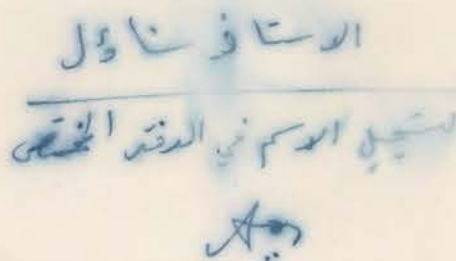 الاستاذ سناؤل
لتسجيل الاسم في الدفتر المختص